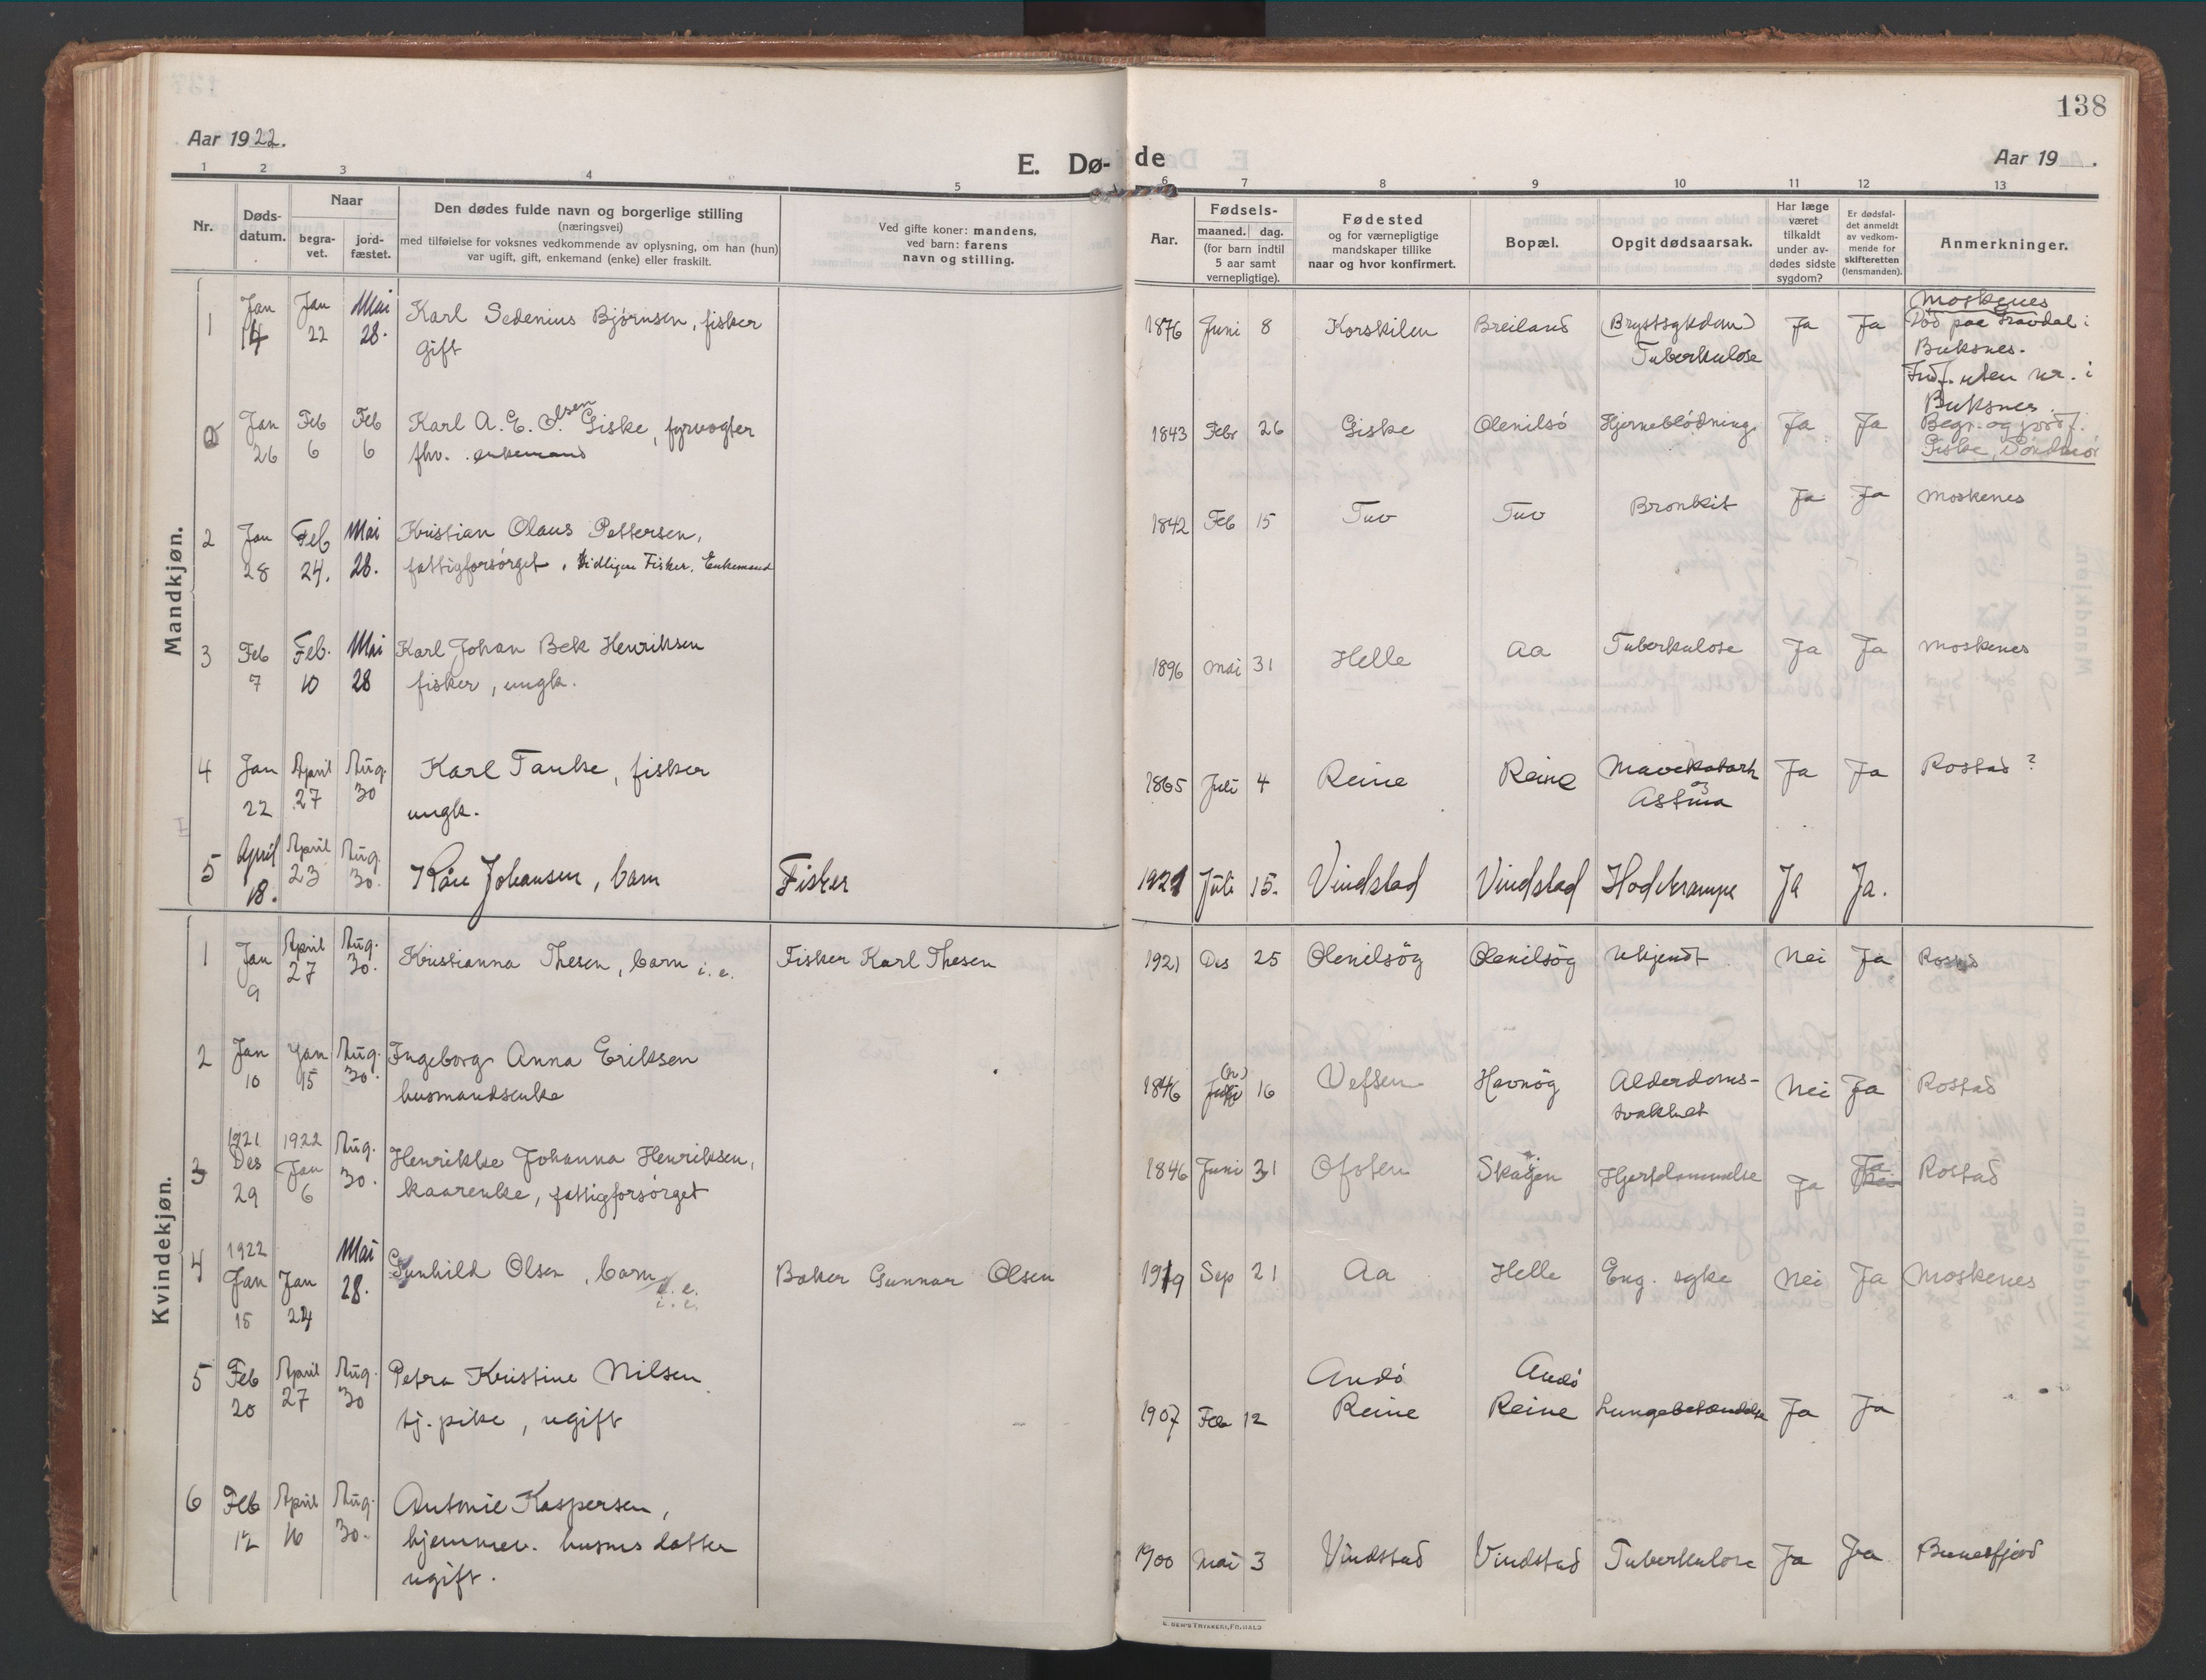 138
Aar 1922.
E. Dø- de
Aar 19 .
1 2 3 4 5 6 7 8 9 10 11 12 13
Nr.
Døds-
datum.
Naar
begra-
vet.
jord-
fæstet.
Den dødes fulde navn og borgerlige stilling
(næringsvei)
med tilføielse for voksnes vedkommende av oplysning, om han (hun)
var ugift, gift, enkemand (enke) eller fraskilt.
Ved gifte koner: mandens,
ved barn: farens
navn og stilling.
Aar.
Fødsels-
maaned. dag.
(for barn indtil
5 aar samt
vernepligtige).
Fødested
og for værnepligtige
mandskaper tillike
naar og hvor konfirmert.
Bopæl.
Opgit dødsaarsak.
Har læge
været
tilkaldt
under av-
dødes sidste
sygdom?
Er dødsfal-
det anmeldt
av vedkom-
mende for
skifteretten
(lensmanden).
Anmerkninger.
Mandkjøn.
1 Jan 14 Jan 22 Mai 28. Karl Sedenius Bjørnsen, fisker
gift
1876 Juni 8 Korskilen Breiland (Brystsykdom)
Tuberkulose
Ja Ja Moskenes
Død paa Gravdal i
Buksnes.
Indf. uten nr. i
Buksnes.
Jan 26 Feb 6 Feb 6 Karl A. E. Olsen Giske, fyrvogter
fhv. enkemand
1843 Febr 26 Giske Olenilsö Hjerneblödning Ja Ja Begr. og jordf.
Giske, Söndmör
2 Jan 28 Feb 24. Mai 28. Kristian Olaus Pettersen,
fattigforsörget, tidligere Fisker. Enkemand
1842 Feb 15 Tuv Tuv Bronkit Ja Ja Moskenes
3 Feb 7 Feb. 10 Mai 28 Karl Johan Bek Henriksen
fisker, ungk.
1896 Mai 31 Helle Aa Tuberkulose Ja Ja Moskenes
4 Jan 22 April 27 Aug. 30 Karl Tanke, fisker
ungk.
1865 Juli 4 Reine Reine Mavekatarh
og
Astma
Ja Ja Rostad ?
5 April 18. April 23 Aug. 30. Kåre Johansen, barn Fisker
1921 Juli 15. Vindstad Vindstad Hodekrampe Ja Ja.
Kvindekjøn.
1 Jan 9 April 27 Aug. 30. Kristianna Thesen, barn i. e. Fisker Karl Thesen
1921 Des 25 Olenilsög Olenilsög Ukjendt Nei Ja Rostad
2 Jan 10 Jan 15 Aug. 30. Ingeborg Anna Eriksen
husmandsenke
1846 (n) 16 Vefsen Havnög Alderdoms-
svakhet
Nei Ja Rostad
3 1921 Des 29 1922 Jan 6 Aug. 30. Henrikke Johanna Henriksen,
kaarenke, fattigforsörget
1846 Juni 31 Ofoten Skagen Hjertelammelse Ja Ja Nei Rostad
4 1922 Jan 15 Jan 24 Mai 28. Gunhild Olsen, barn i. e. Baker Gunnar Olsen
1919 Sep 21 Aa Helle Eng. syke Nei Ja Moskenes
5 Feb 20 April 27 Aug. 30 Petra Kristine Nilsen
tj. pike, ugift
1907 Feb 12 Andö
Reine
Andö
Reine
Lungebetændelse Ja Ja
6 Feb 12 April 16 Aug. 30. Antonie Kaspersen,
hjemmev. husmds datter
ugift.
1900 Mai 3 Vindstad Vindstad Tuberkulose Ja Ja Bunesfjord